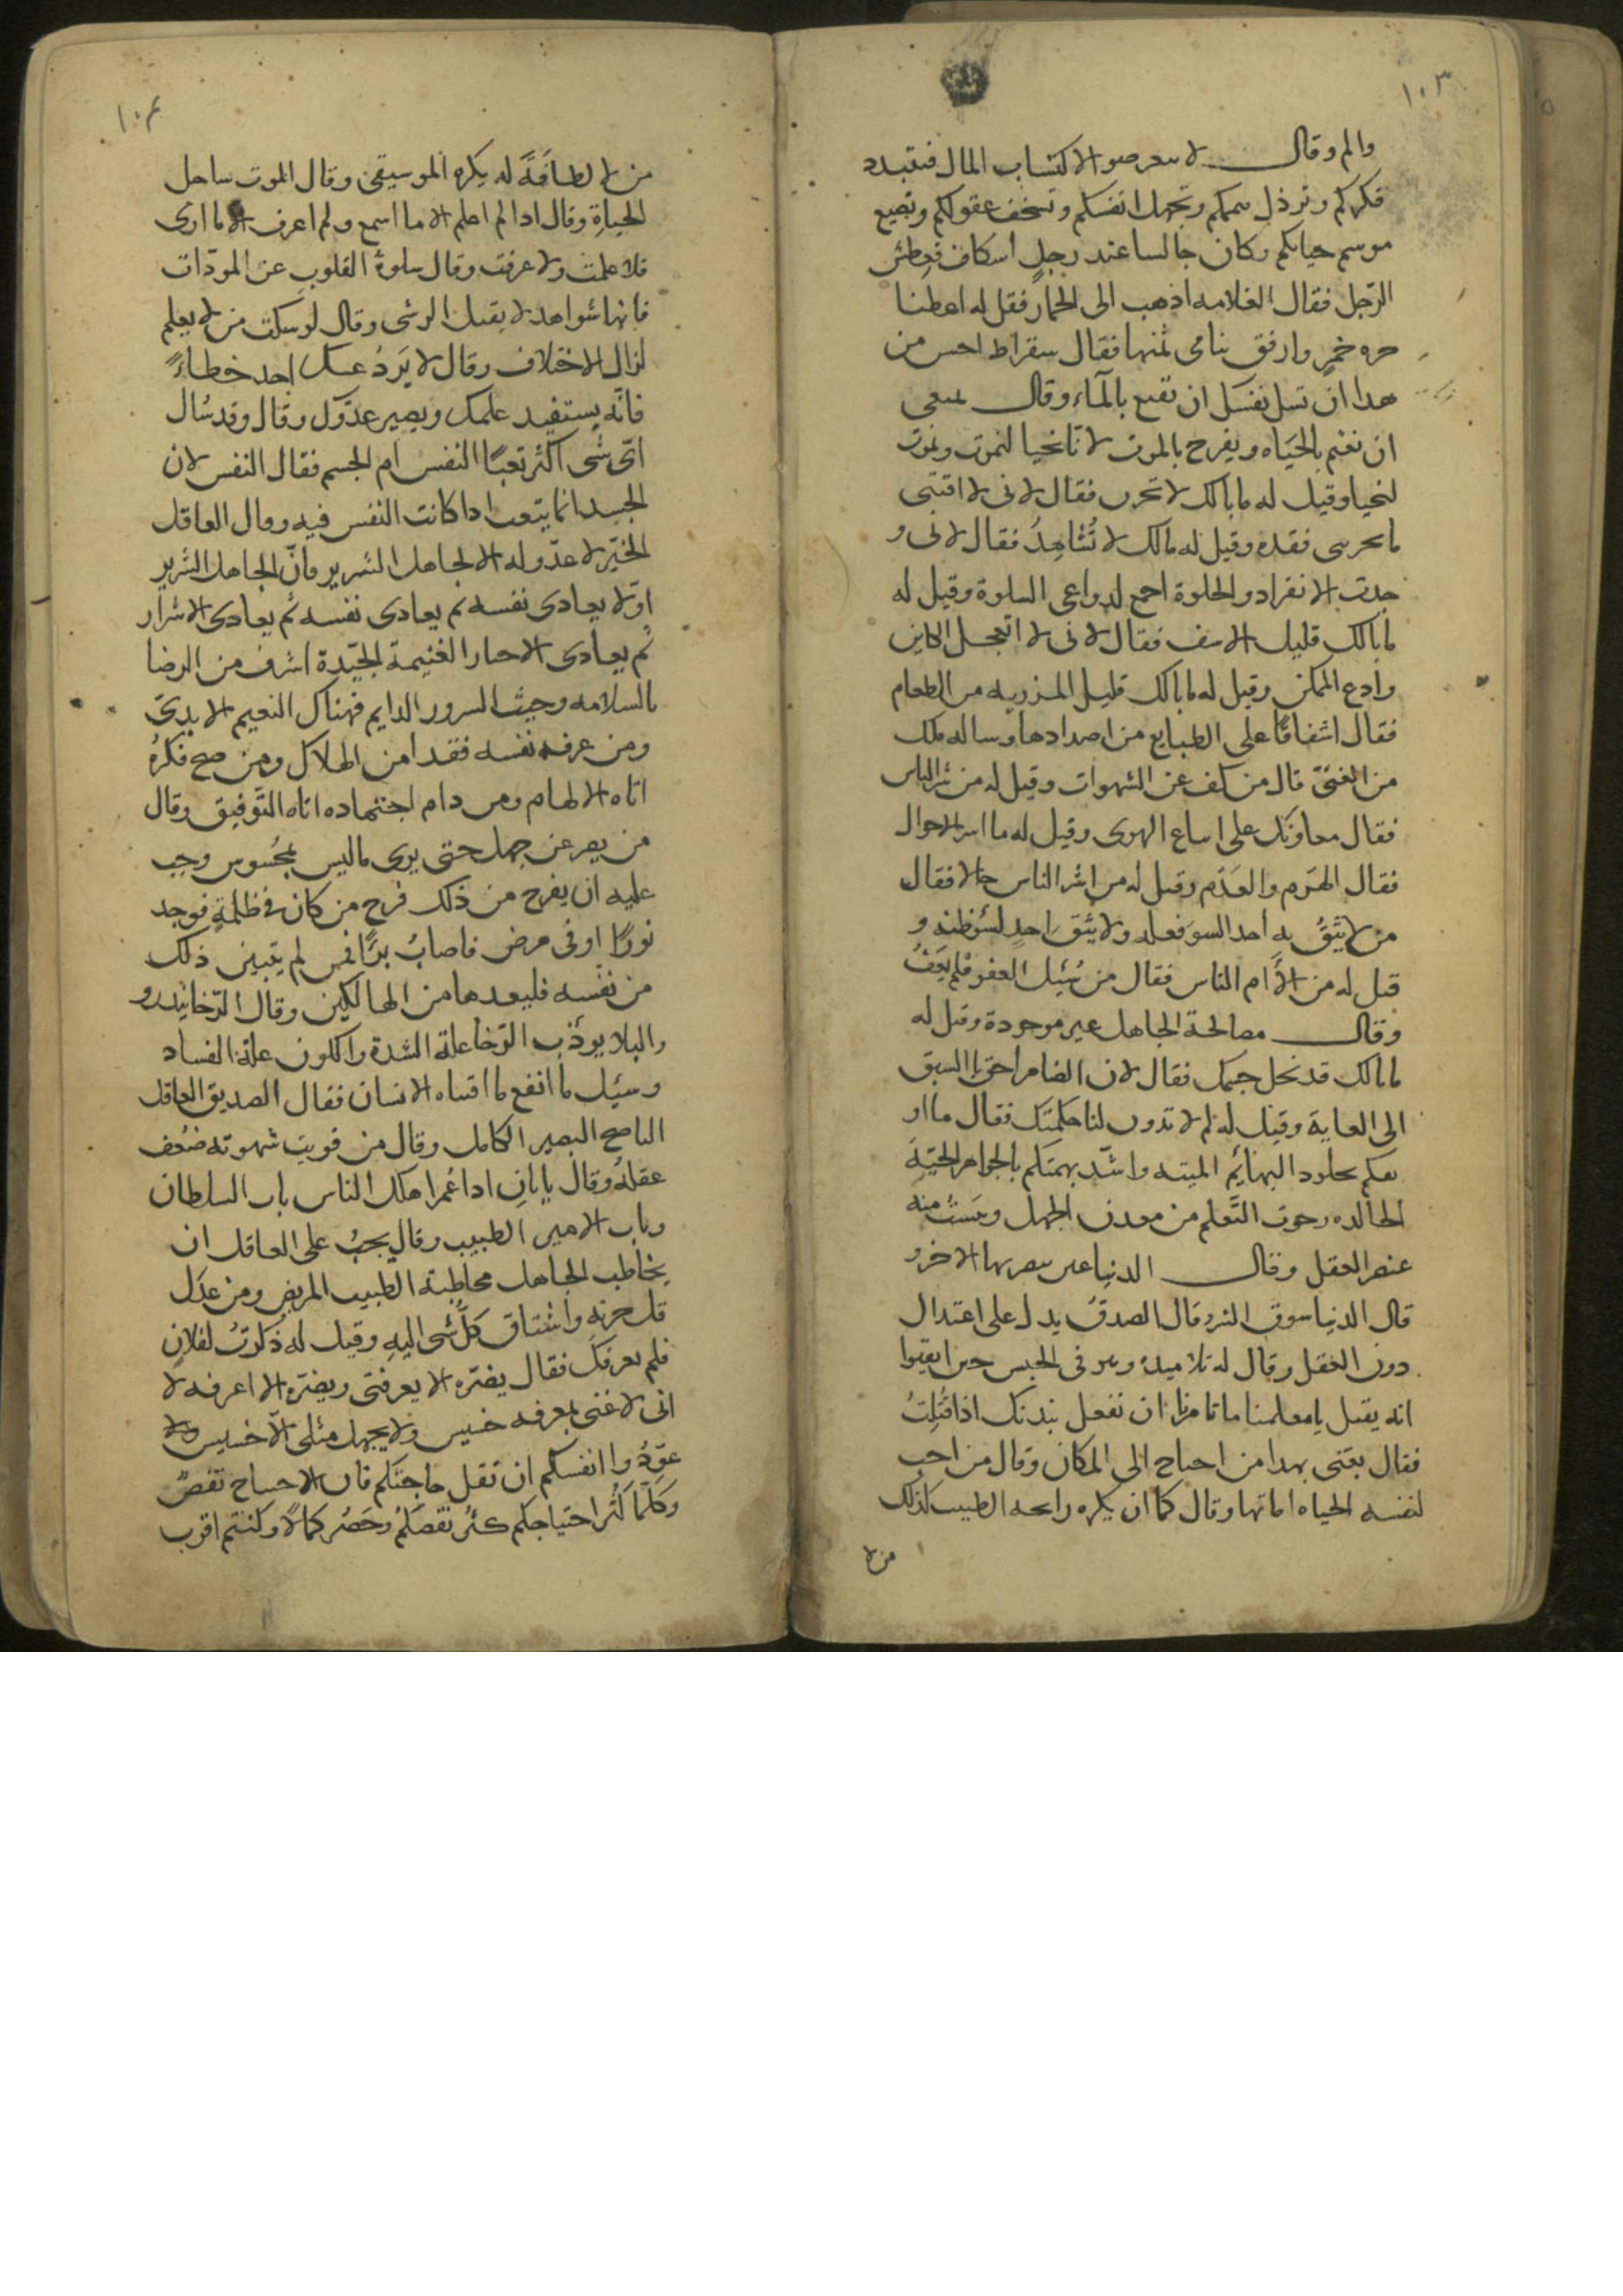 ١٠٣
والم وقال لا تتعرضوا لاكتساب المال فتتبدد
فكركم وترذل هممكم وتجهل انفسكم وتسخف عقولكم وتضيع
موسم حياتكم وكان جالسا عند رجل اسكاف فعطش
الرّجل فقال لغلامه اذهب الى الخمار فقل له اعطنا
جره خمرٍ وارفق بنا فى ثمنها فقال سقراط احسن من
هذا ان تسل نفسك ان تقنع بالمآء وقال ينبغى
ان نغتم بالحيَاه ويفرح بالموت لاناّ نحيا لنموت ونموت
لنحيا وقيل له ما بالك لا تحزن فقال لانى لا اقتنى
ما يحزننى فقده وقيل له مالك لا تُشاهِدُ فقال لانى و
جدت الانفراد والخلوة اجمع لدواعى السلوة وقيل له
ما بالك قليل الاسف فقال لانى لا اتعجل الكاين
وادع الممكن وقيل له ما بالك قليل المزريه من الطعام
فقال اشفاقًا على الطبايع من اضدادها وساله ملك
من الغنىّ قال من كف عن الشهوات وقيل له من شر الناس
فقال معاونك على اتباع الهوى وقيل له ما اشر الاحوال
فقال الهَرم والعَدَم وقيل له من اشر الناس حالا فقال
من لا يثقُ به احد لسو فعله ولا يثق باحدٍ لسُوظنه و
قيل له من الأم الناس فقال من سُئِل العفو فلم يَعفُ
وقال مصالحة الجاهل غير موجودة وقيل له
ما بالك قد نحل جسمك فقال لان الضامر احق بالسبق
الى الغاية وقيل له لم لا تدون لنا حكمتك فقال ما او
ثقكم بجلود البهائم الميته واشدّ تهمتكم بالجواهر الحيّة
الخالده رجوت التَّعلم من معدن الجهل ويئستُ منه
عنصر العقل وقال الدنيا
قال الدنيا سوق الشر وقال الصدقُ يدل على اعتدال
دون العقل وقال له تلاميذه وهو فى الحبس حين ايقنوا
انه يقتل يا معلمنا ما تامرنا ان نفعل ببدنك اذا قُتِلتُ
فقال يعتنى بهذا من احتاج الى المكان وقال من احب
لنفسه الحياه اماتها وقال كما ان يكره رايحه الطيب كذلك
من لا
١٠٤
من لا لطافَةً له يكره الموسيقى وقال الموت ساحل
الحياةِ وقال اذا لم اعلم الا ما اسمع ولم اعرف الا ما ارى
فلا علمت ولا عرفت وقال سلوة القلوبِ عن المودّات
فانها شواهد لا يقبل الرشى وقال لو سكت من لا يعلم
لزال الاختلاف وقال لا يَردُ عنك احد خطاءً
فانّه يستفيد علمك ويصير عدوّك وقال وقد سُال
اىّ شى اكثر تعبًا النفس ام الجسم فقال النفس لان
الجسد انما يتعب اذا كانت النفس فيه وقال العاقل
الخيّر لا عدّو له الا الجاهل الشرير فانّ الجاهل الشرير
اوّلا يعادى نفسه ثم يعادى نفسه ثم يعادى الاشرار
ثم يعادى الاخيار الغنيمة الجيّدة اشرف من الرضا
بالسلامه وحيث السرور الدايم فهناك النعيم الابدىّ
ومن عرف نفسه فقد امن الهلاك ومن صح فكرهُ
اتاه الالهام ومن دام اجتهاده اتاه التَّوفيق وقال
من يعر عن جهل حتى يرى ماليس بمحسوس وجب
عليه ان يفرح من ذلك فرح من كان فى ظلمةٍ فوجد
نورًا او فى مرض فاصابُ برًا فمن لم يتبين ذلك
من نفسه فليعدها من الهالكين وقال الرّخا
والبلا يوذّب الرّخا علة الشدة والكون علة الفساد
وسئِل ما انفع ما اقتناه الانسان فقال الصديق العاقل
الناصح البصير الكامل وقال من قويت شهوته ضعُف
عقلهُ وقال بابانِ اذا عُمرا هلك الناس باب السلطان
وباب الامير الطبيب وقال يجبُ على العاقل ان
يخاطب الجاهل مخاطبة الطبيب المريض ومن عدَل
قل حزنهِ واشتاق كلّ شى اليهِ وقيل له ذَكَرتُ لفلانٍ
فلم يعرفكَ فقال يضرّه الا يعرفنى ويضرّه الا اعرفه لا
انى لا غنى بمعرفه خسيس ولا يجهل مثلى الّا خسيس
عوِّدُوا انفسكم ان تقل حاجتكم فان الاحتياج نقصٌ
وكلّما كثُر احتياجكم كثُر نقصكُم وحَصُر كمالاً وكنتم اقرب